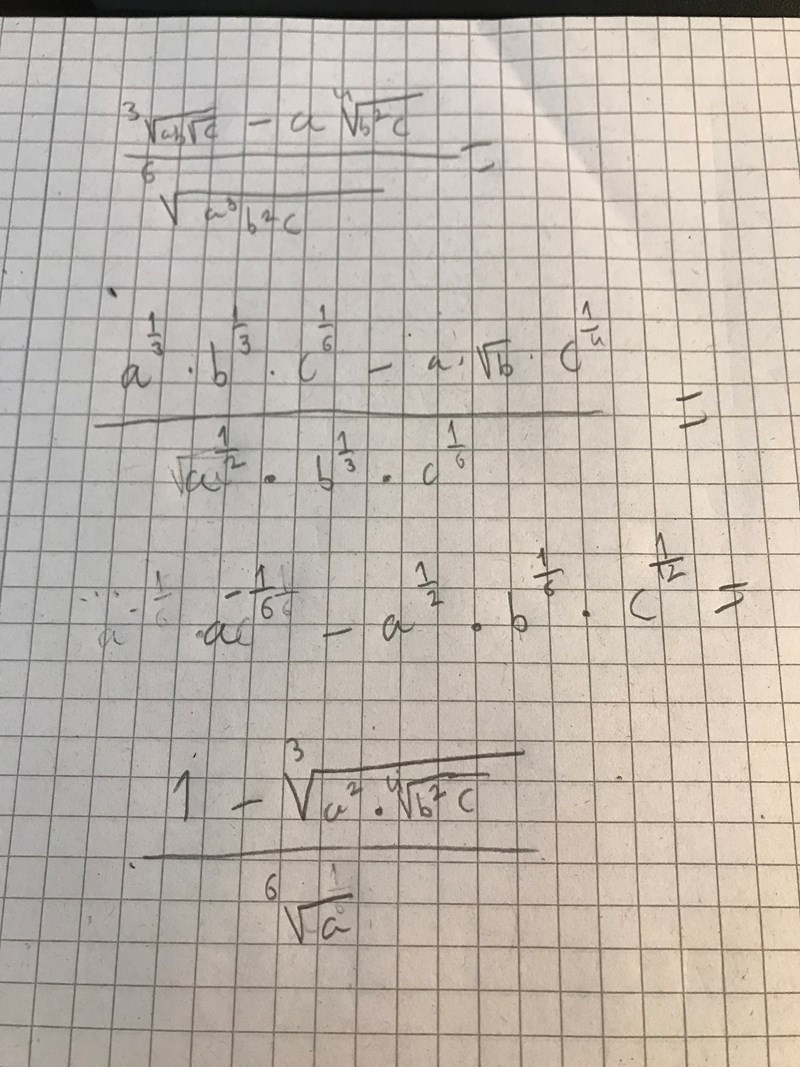 ∛(ab√c) − a ∜(b²c) / ⁶√(a³b²c) =
a^(1/3) · b^(1/3) · c^(1/6) − a · √b · c^(1/4) / a^(1/2) · b^(1/3) · c^(1/6) =
a^(−1/6) − a^(1/2) · b^(1/6) · c^(1/12) =
1 − ∛(a² · ∜(b²c)) / ⁶√a